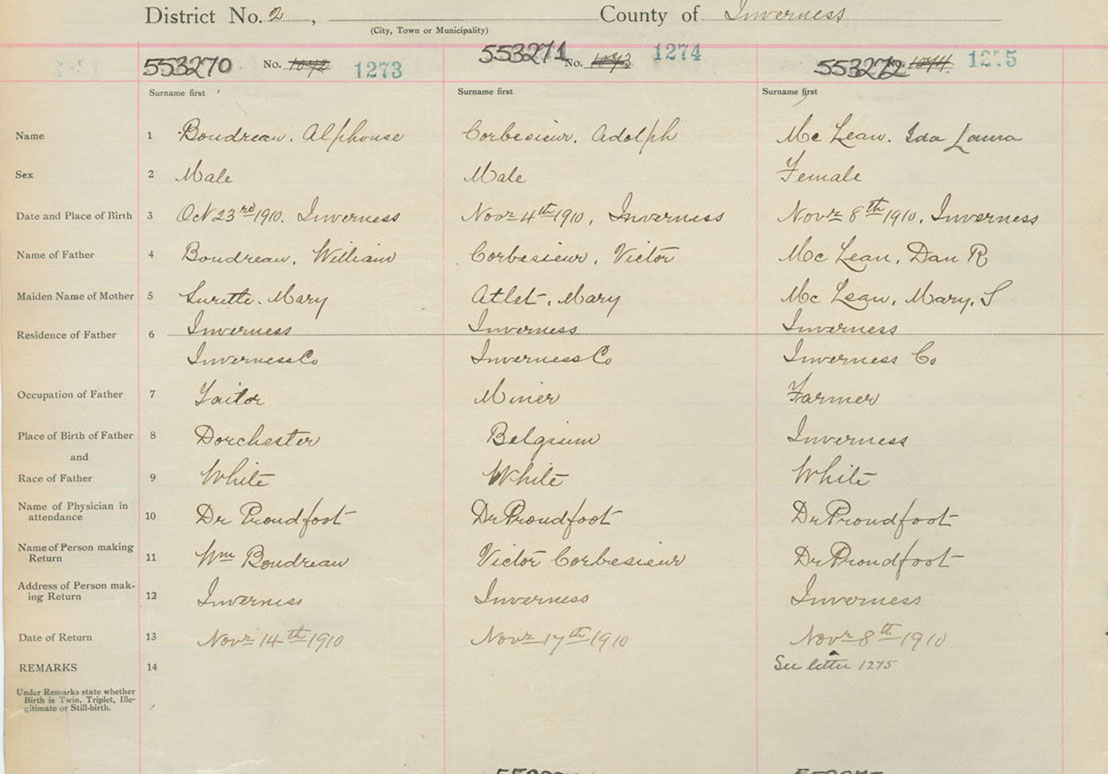 District No. 2 , County of Inverness
(City, Town or Municipality)
553270 No. 1042 1273 553271 No. 1043 1274 553272 1044 1275
Surname first Surname first Surname first
Name 1 Boudreau, Alphonse Corbesieur, Adolph Mc Lean, Ida Laura
Sex 2 Male Male Female
Date and Place of Birth 3 Oct 23rd 1910. Inverness Novr 4th 1910, Inverness Novr 8th 1910, Inverness
Name of Father 4 Boudreau, William Corbesieur, Victor Mc Lean, Dan R
Maiden Name of Mother 5 Surette, Mary Atlet, Mary Mc Lean, Mary, S
Residence of Father 6 Inverness Inverness Inverness
Inverness Co Inverness Co Inverness Co
Occupation of Father 7 Tailor Miner Farmer
Place of Birth of Father 8 Dorchester Belgium Inverness
and
Race of Father 9 White White White
Name of Physician in
attendance 10 Dr Proudfoot Dr Proudfoot Dr Proudfoot
Name of Person making
Return 11 Wm Boudreau Victor Corbesieur Dr Proudfoot
Address of Person mak-
ing Return 12 Inverness Inverness Inverness
Date of Return 13 Novr 14th 1910 Novr 17th 1910 Novr 8th 1910
REMARKS 14 See letter 1275
Under Remarks state whether
Birth is Twin, Triplet, Ille-
gitimate or Still-birth.